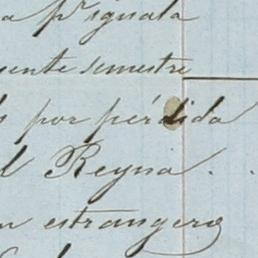 a pr iguala
sente semestre
s por pérdida
l Reyna . .
n estrangero